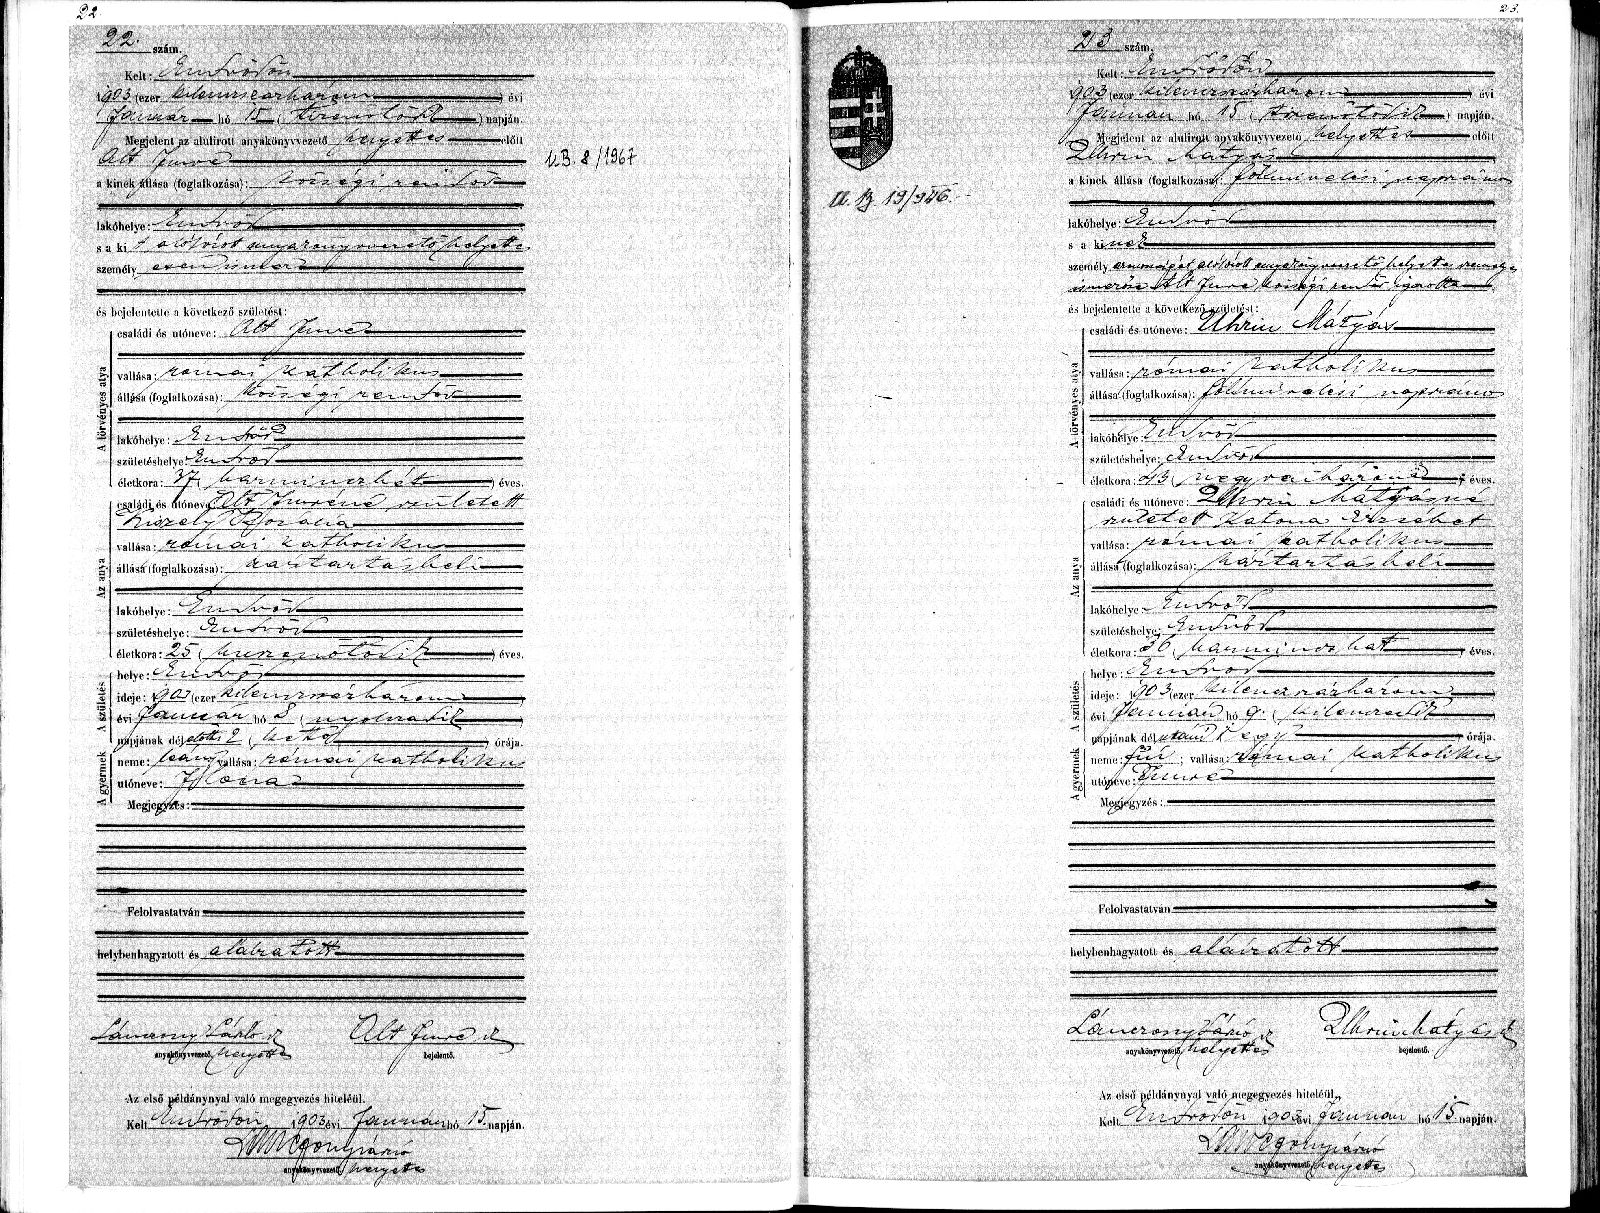 22.
22. szám.
Kelt: Endrődön
1903 (ezer kilenczszázhárom) évi
Január hó 15 (tizenötödik) napján.
Megjelent az alulirott anyakönyvvezető helyettes előtt
Alt Imre
a kinek állása (foglalkozása): községi rendőr
lakóhelye: Endrőd
s a kit alólírott anyakönyvvezető helyettes
személyesen ismer
és bejelentette a következő születést:
A törvényes atya
családi és utóneve: Alt Imre
vallása: római katholikus
állása (foglalkozása): községi rendőr
lakóhelye: Endrőd
születéshelye: Endrőd
életkora: 37 (harminczhét) éves.
Az anya
családi és utóneve: Alt Imréné született
Rozália
vallása: római katholikus
állása (foglalkozása): háztartásbeli
lakóhelye: Endrőd
születéshelye: Endrőd
életkora: 25 (huszonötödik) éves.
A születés
helye: Endrőd
ideje: 1903 (ezer kilenczszázhárom)
évi Január hó 8 (nyolczadik)
napjának délelőtti 2 (kettő) órája.
A gyermek
neme: leány vallása: római katholikus
utóneve: Ilona
Megjegyzés:
Felolvastatván
helybenhagyatott és aláíratott
anyakönyvvezető helyettes
Alt Imre
bejelentő.
Az első példánynyal való megegyezés hiteléül.
Kelt Endrődön 1903 évi Január hó 15. napján.
anyakönyvvezető helyettes
KB. 8/1967
23.
23 szám.
Kelt: Endrődön
1903 (ezer kilenczszázhárom) évi
Január hó 15 (tizenötödik) napján.
Megjelent az alulirott anyakönyvvezető helyettes előtt
Uhrin Mátyás
a kinek állása (foglalkozása): földmívelési napszámos
lakóhelye: Endrőd
s a kinek
személyazonosságát alólírott anyakönyvvezető helyettes személyes
ismerőse Alt Imre községi rendőr igazolta
és bejelentette a következő születést:
A törvényes atya
családi és utóneve: Uhrin Mátyás
vallása: római katholikus
állása (foglalkozása): földmívelési napszámos
lakóhelye: Endrőd
születéshelye: Endrőd
életkora: 43 (negyvenhárom) éves.
Az anya
családi és utóneve: Uhrin Mátyásné
született Katona Erzsébet
vallása: római katholikus
állása (foglalkozása): háztartásbeli
lakóhelye: Endrőd
születéshelye: Endrőd
életkora: 36 (harminczhat) éves.
A születés
helye: Endrőd
ideje: 1903 (ezer kilenczszázhárom)
évi Január hó 9. (kilenczedik)
napjának délutáni 1 (egy) órája.
A gyermek
neme: fiú; vallása: római katholikus
utóneve: Imre
Megjegyzés:
Felolvastatván
helybenhagyatott és aláíratott
anyakönyvvezető helyettes
Uhrin Mátyás
bejelentő.
Az első példánynyal való megegyezés hiteléül.
Kelt Endrődön 1903 évi Január hó 15 napján.
anyakönyvvezető helyettes